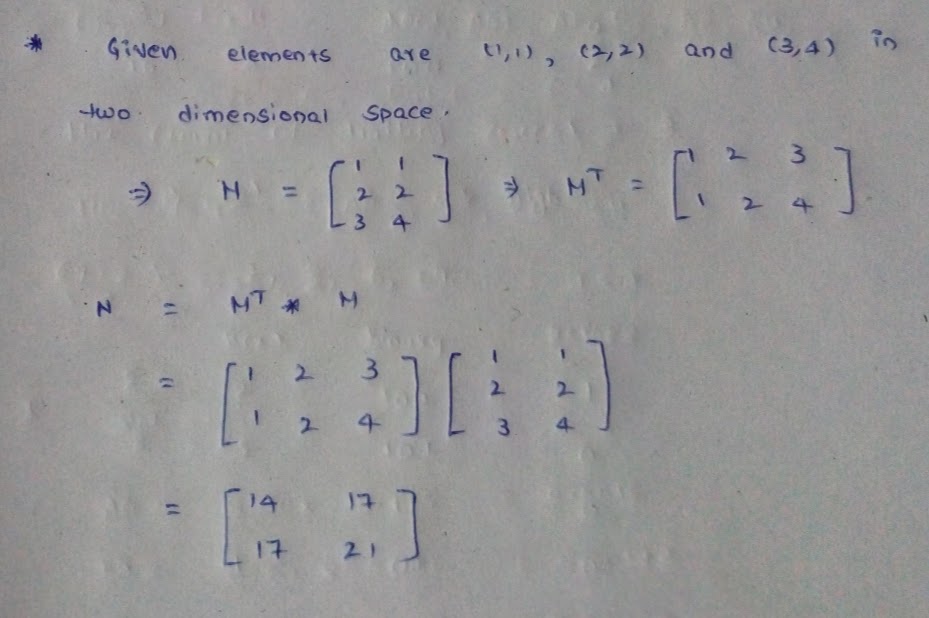 * Given elements are (1,1), (2,2) and (3,4) in
two dimensional space.
⇒ M = [1 1
2 2
3 4] ⇒ Mᵀ = [1 2 3
1 2 4]
N = Mᵀ * M
= [1 2 3
1 2 4] [1 1
2 2
3 4]
= [14 17
17 21]